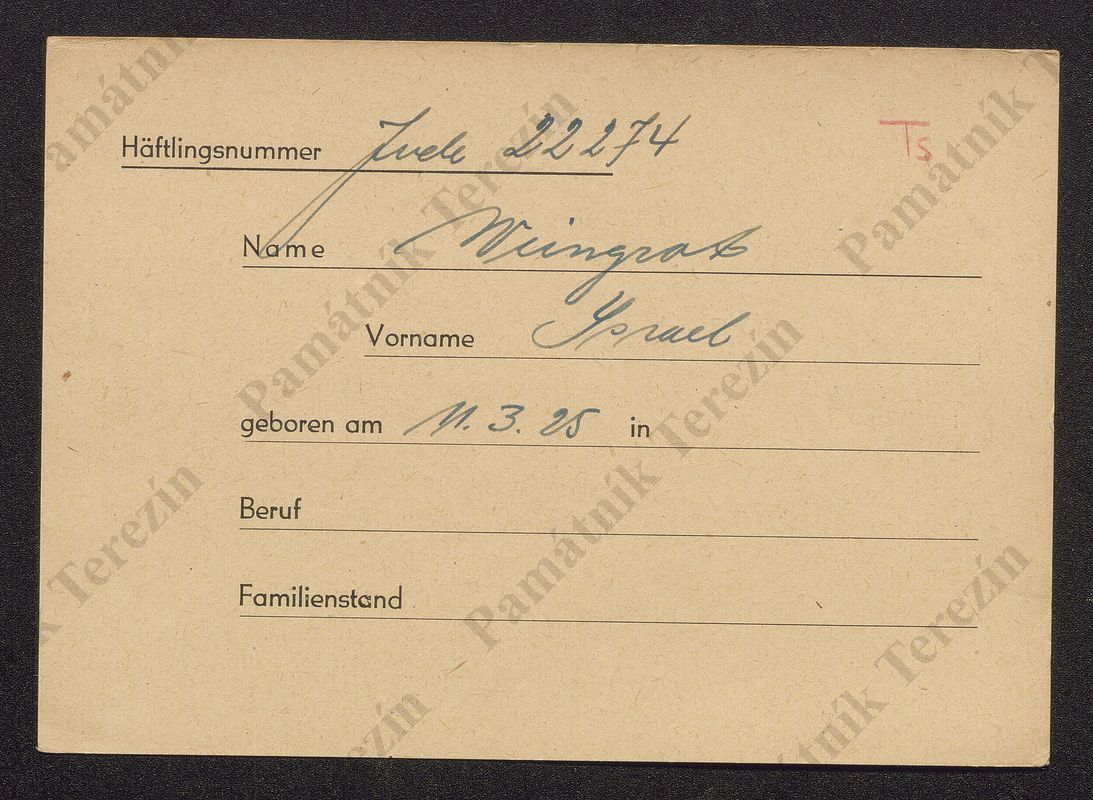 Häftlingsnummer Jude 22274
Ts
Name Weingrot
Vorname Israel
geboren am 11. 3. 25 in
Beruf
Familienstand
Památník Terezín
Památník Terezín
Památník Terezín
Památník Terezín